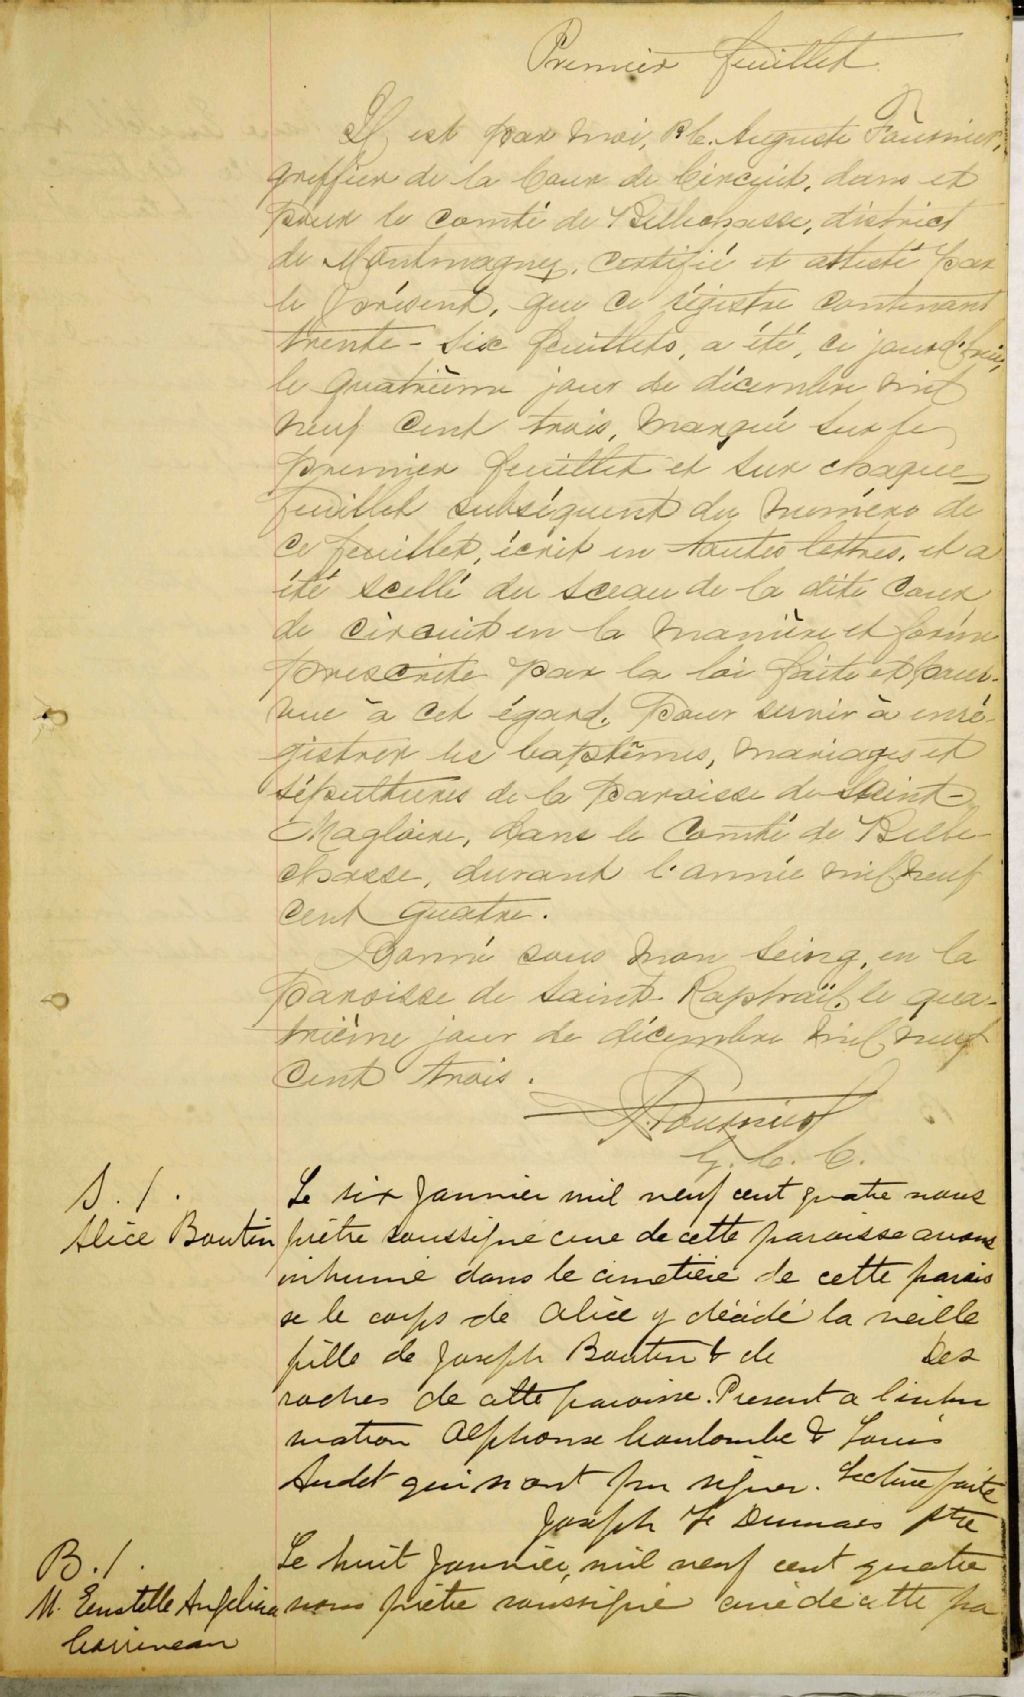 Premier feuillet
Il est par moi, Ph. Auguste Fournier,
greffier de la Cour de Circuit, dans et
pour le comté de Bellechasse, district
de Montmagny, certifié et attesté par
le présent, que ce régistre contenant
trente-six feuillets, a été, ce jourd'hui,
le quatrième jour de décembre mil
neuf cent trois, marqué sur le
premier feuillet et sur chaque
feuillet subséquent du numéro de
ce feuillet, écrit en toutes lettres, et a
été scellé du sceau de la dite Cour
de circuit en la manière et forme
prescrite par la loi faite et pour-
vue à cet égard, pour servir à enré-
gistrer les baptêmes, mariages et
sépultures de la paroisse de Saint-
Magloire, dans le Comté de Belle-
chasse, durant l'année mil neuf
cent quatre.
Donné sous mon seing, en la
paroisse de Saint-Raphaël, le qua-
trième jour de décembre mil neuf
cent trois.
A. Fournier
G. C. C.
S. 1.
Alice Boutin
Le six Janvier mil neuf cent quatre nous
prêtre soussigné curé de cette paroisse avons
inhumé dans le cimetière de cette parois
se le corps de Alice y décédé la veille
fille de Joseph Boutin & de Des
roches de cette paroisse. Présent a l'inhu
mation Alphonse Coulombe & Louis
Audet qui n'ont pu signer. Lecture faite
Joseph Dumais Ptre
B. 1.
M. Angelina
Le huit Janvier, mil neuf cent quatre
nous prêtre soussigné curé de cette pa